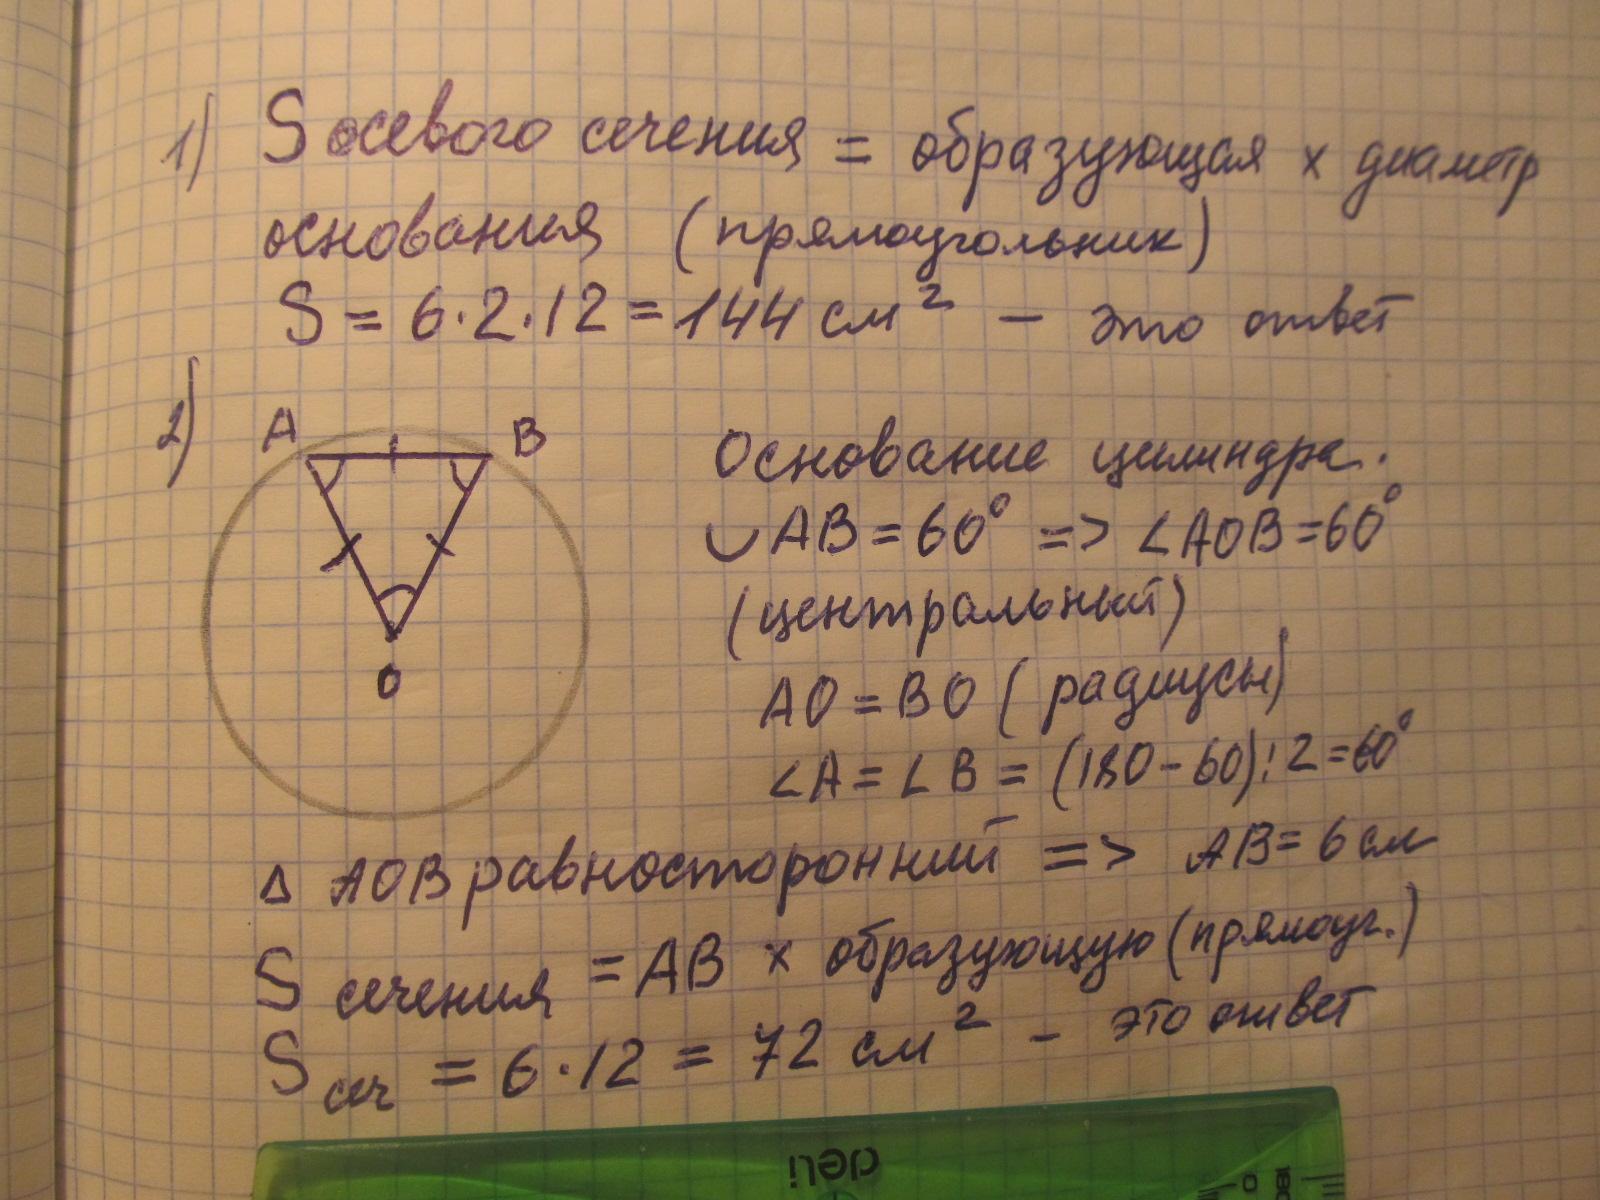 1) S осевого сечения = образующая x диаметр
основания (прямоугольник)
S = 6·2·12 = 144 см² – это ответ
2)
A B
O
Основание цилиндра.
◡AB = 60° => ∠AOB = 60°
(центральный)
AO = BO (радиусы)
∠A = ∠B = (180 - 60):2 = 60°
Δ AOB равносторонний => AB = 6 см
S сечения = AB x образующую (прямоуг.)
S сеч = 6·12 = 72 см² – это ответ
deli
0 180